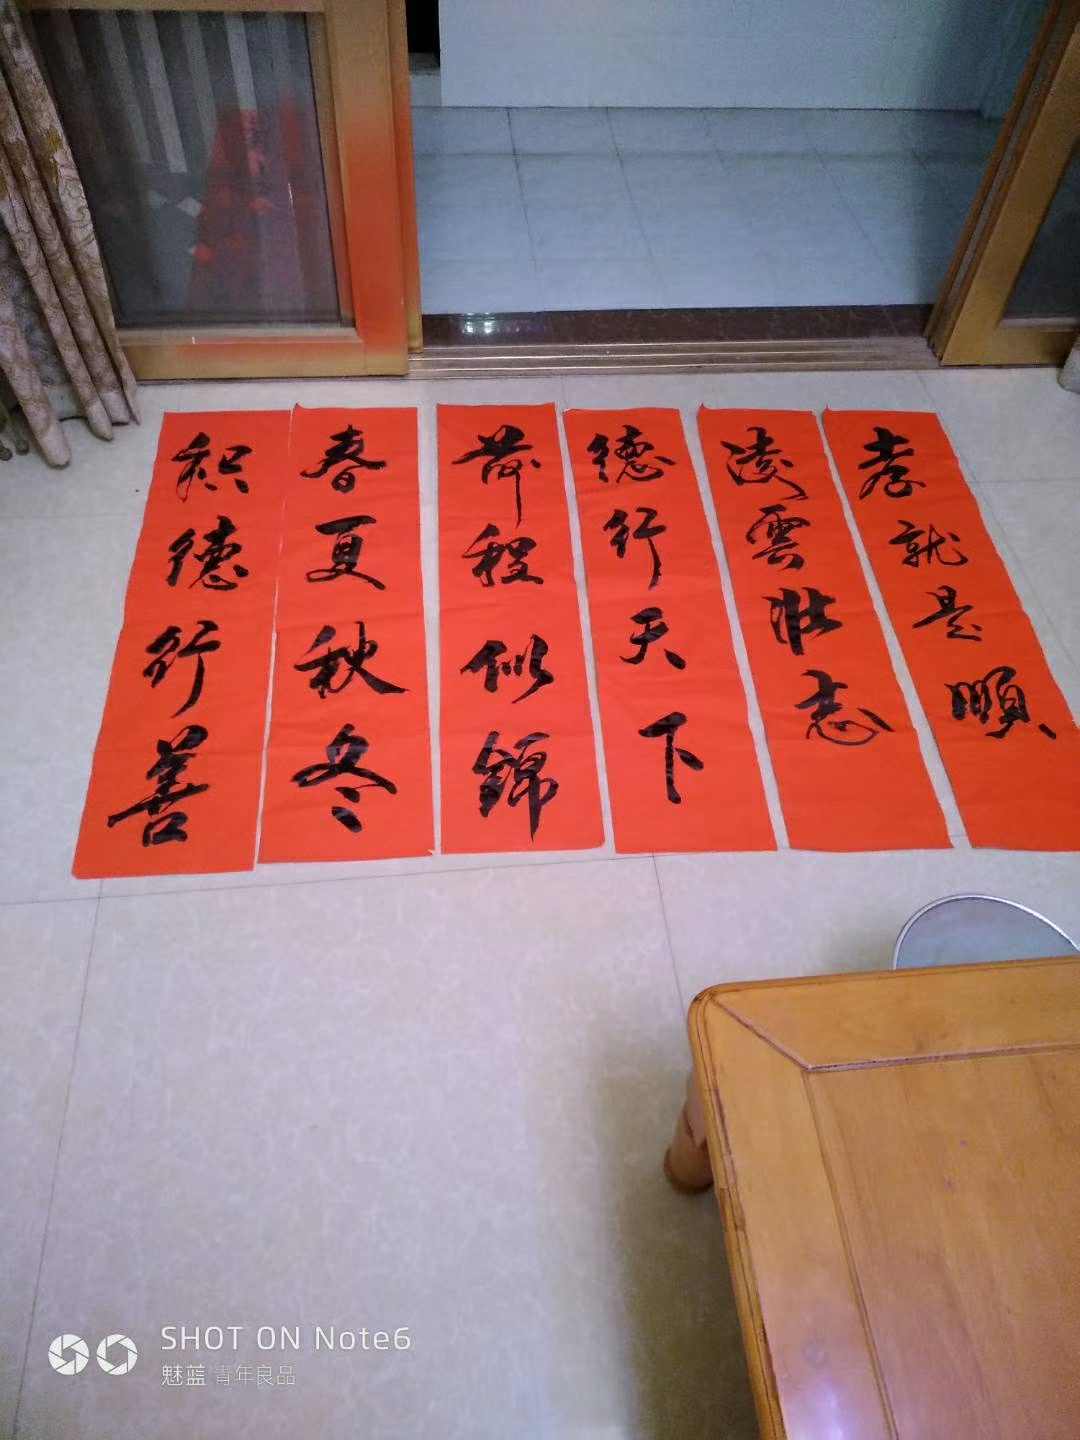 积德行善
春夏秋冬
前程似錦
德行天下
凌雲壮志
孝就是順
SHOT ON Note6
魅蓝 青年良品